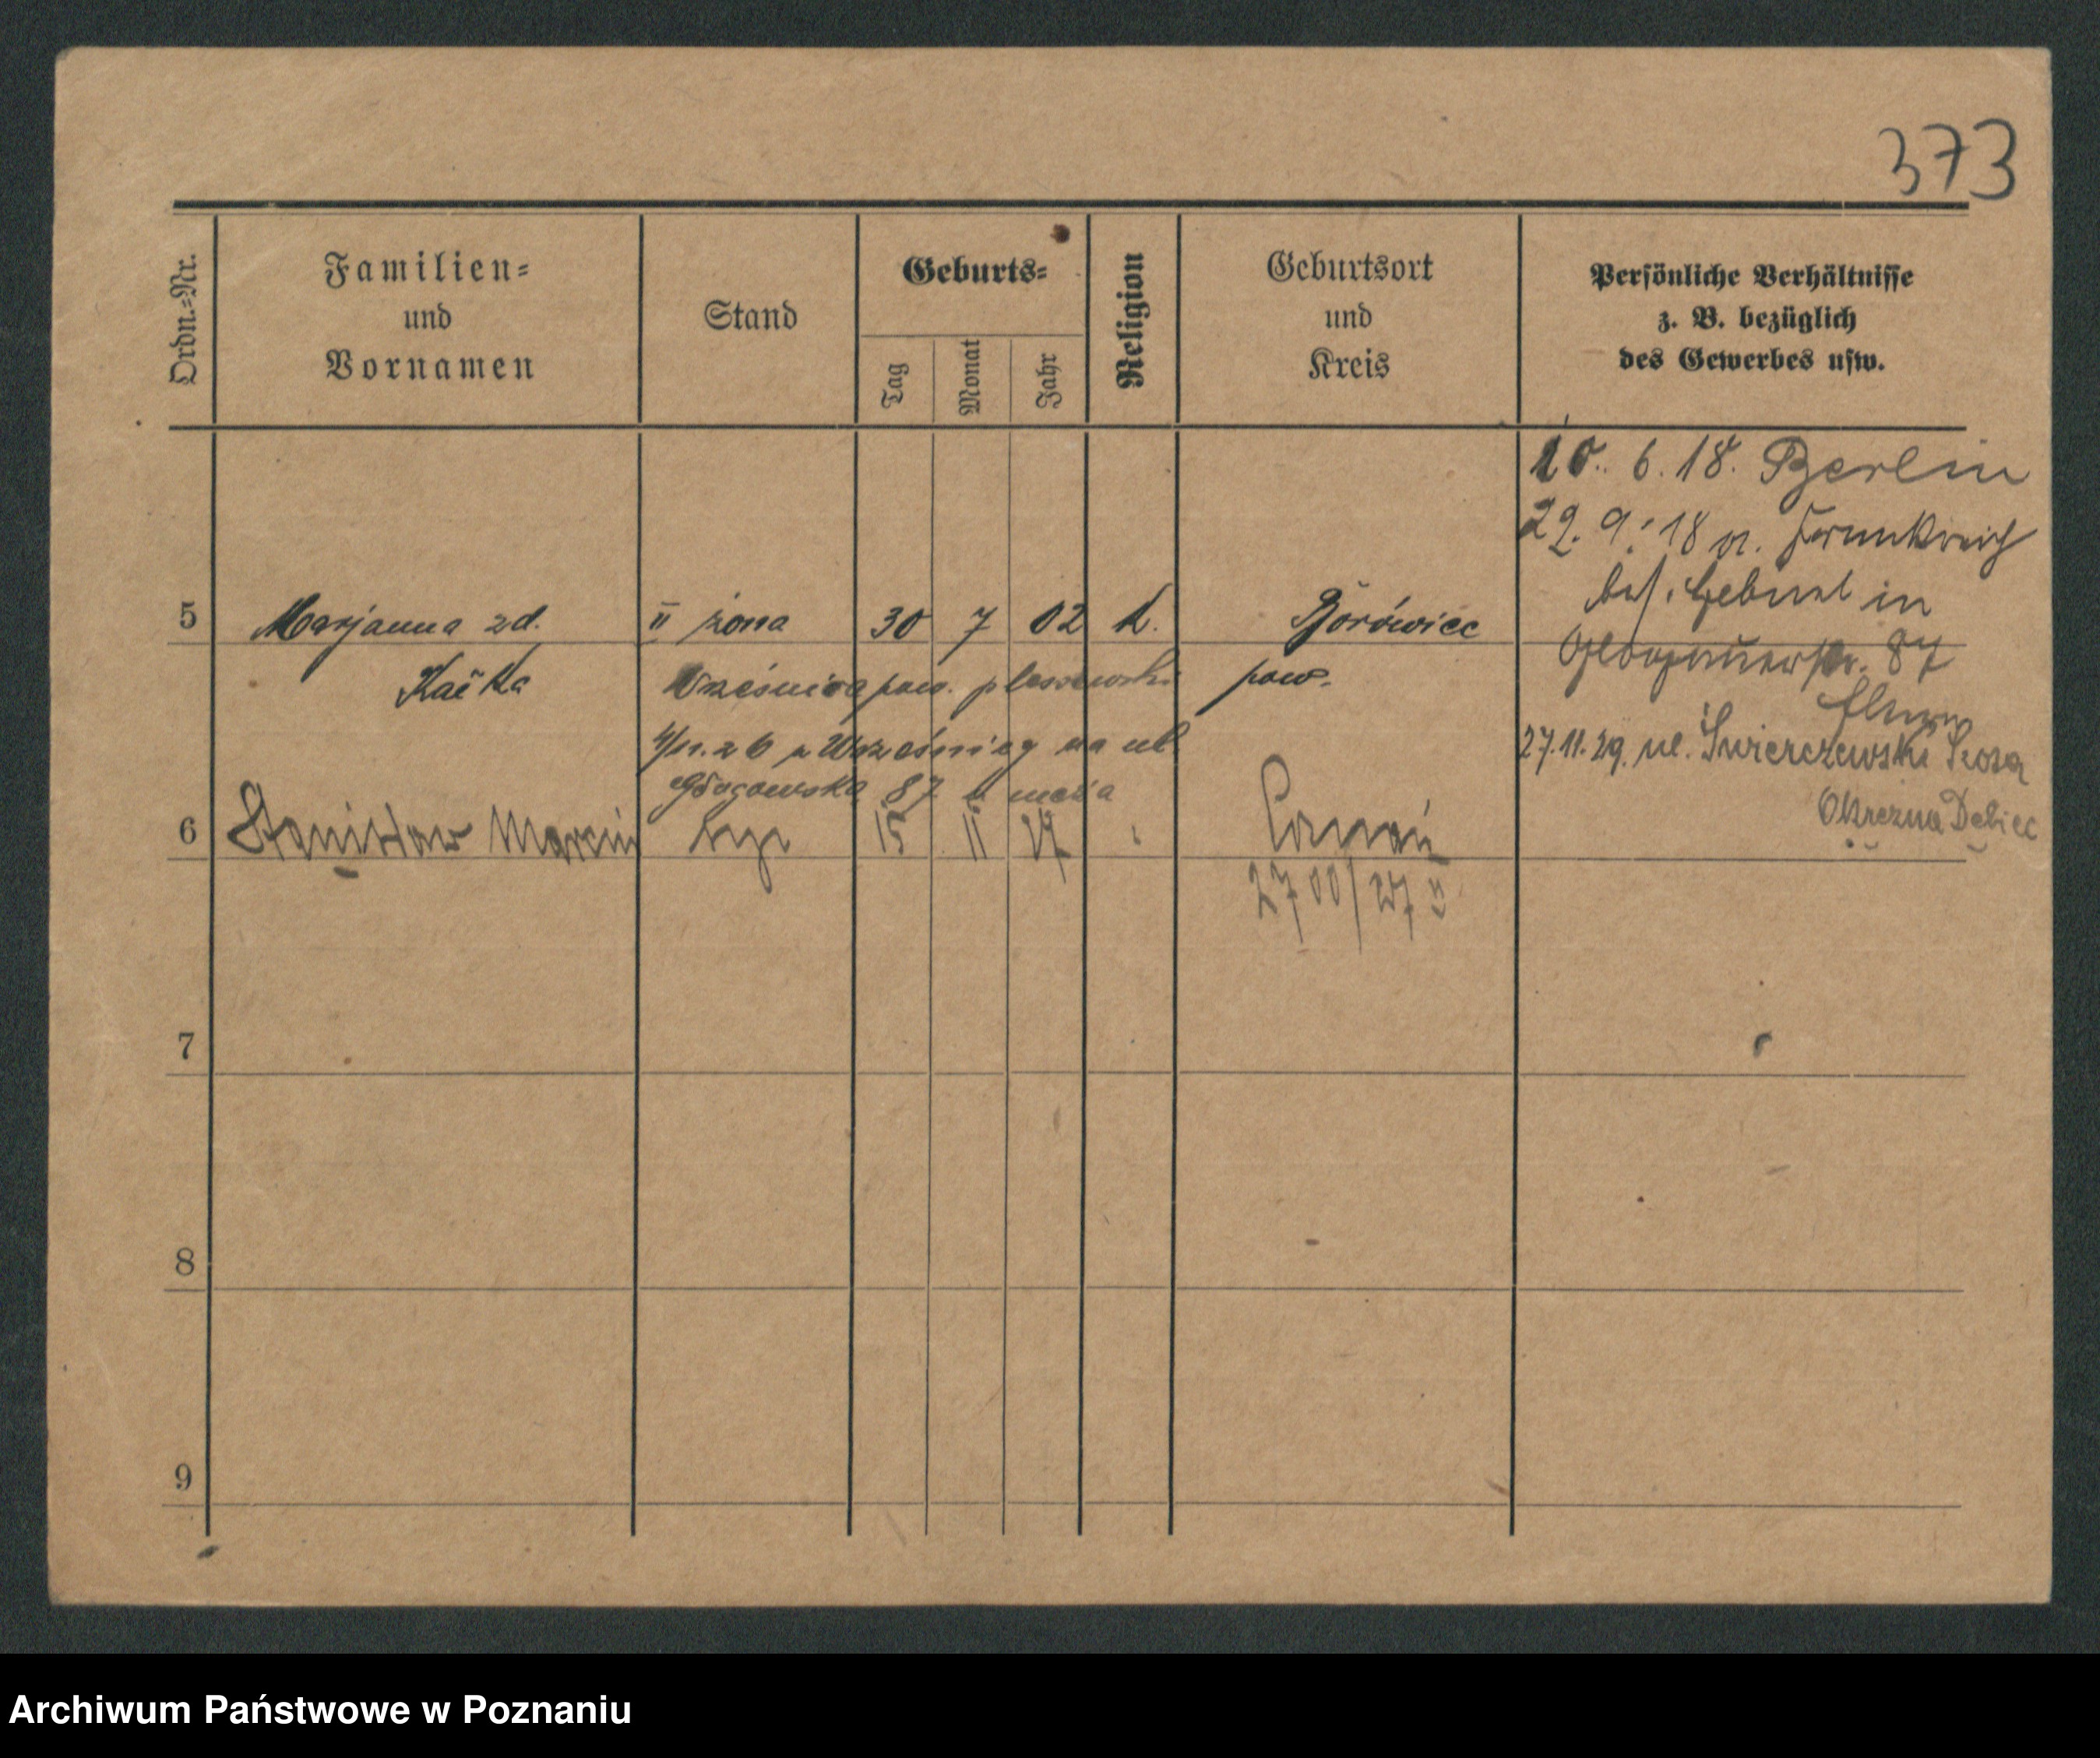 373
Ordn.=Nr.
Familien=
und
Vornamen
Stand
Geburts=
Tag
Monat
Jahr
Religion
Geburtsort
und
Kreis
Persönliche Verhältnisse
z. B. bezüglich
des Gewerbes usw.
10. 6. 18. Berlin
22. 9. 18 n. Frankreich
in
87
5 Marjanna zd. II żona 30 7 02 k. Borówiec
Kaćka pow. pleszewski pow.
4/11. 26 z na ul
Głogowska 87 u męża
27.11.29. ul. Świerczewski Szosa
Okrężna Dębiec
6 Stanisław Marcin syn 15 11 27 Poznań
2700/27 II
7
8
9
Archiwum Państwowe w Poznaniu